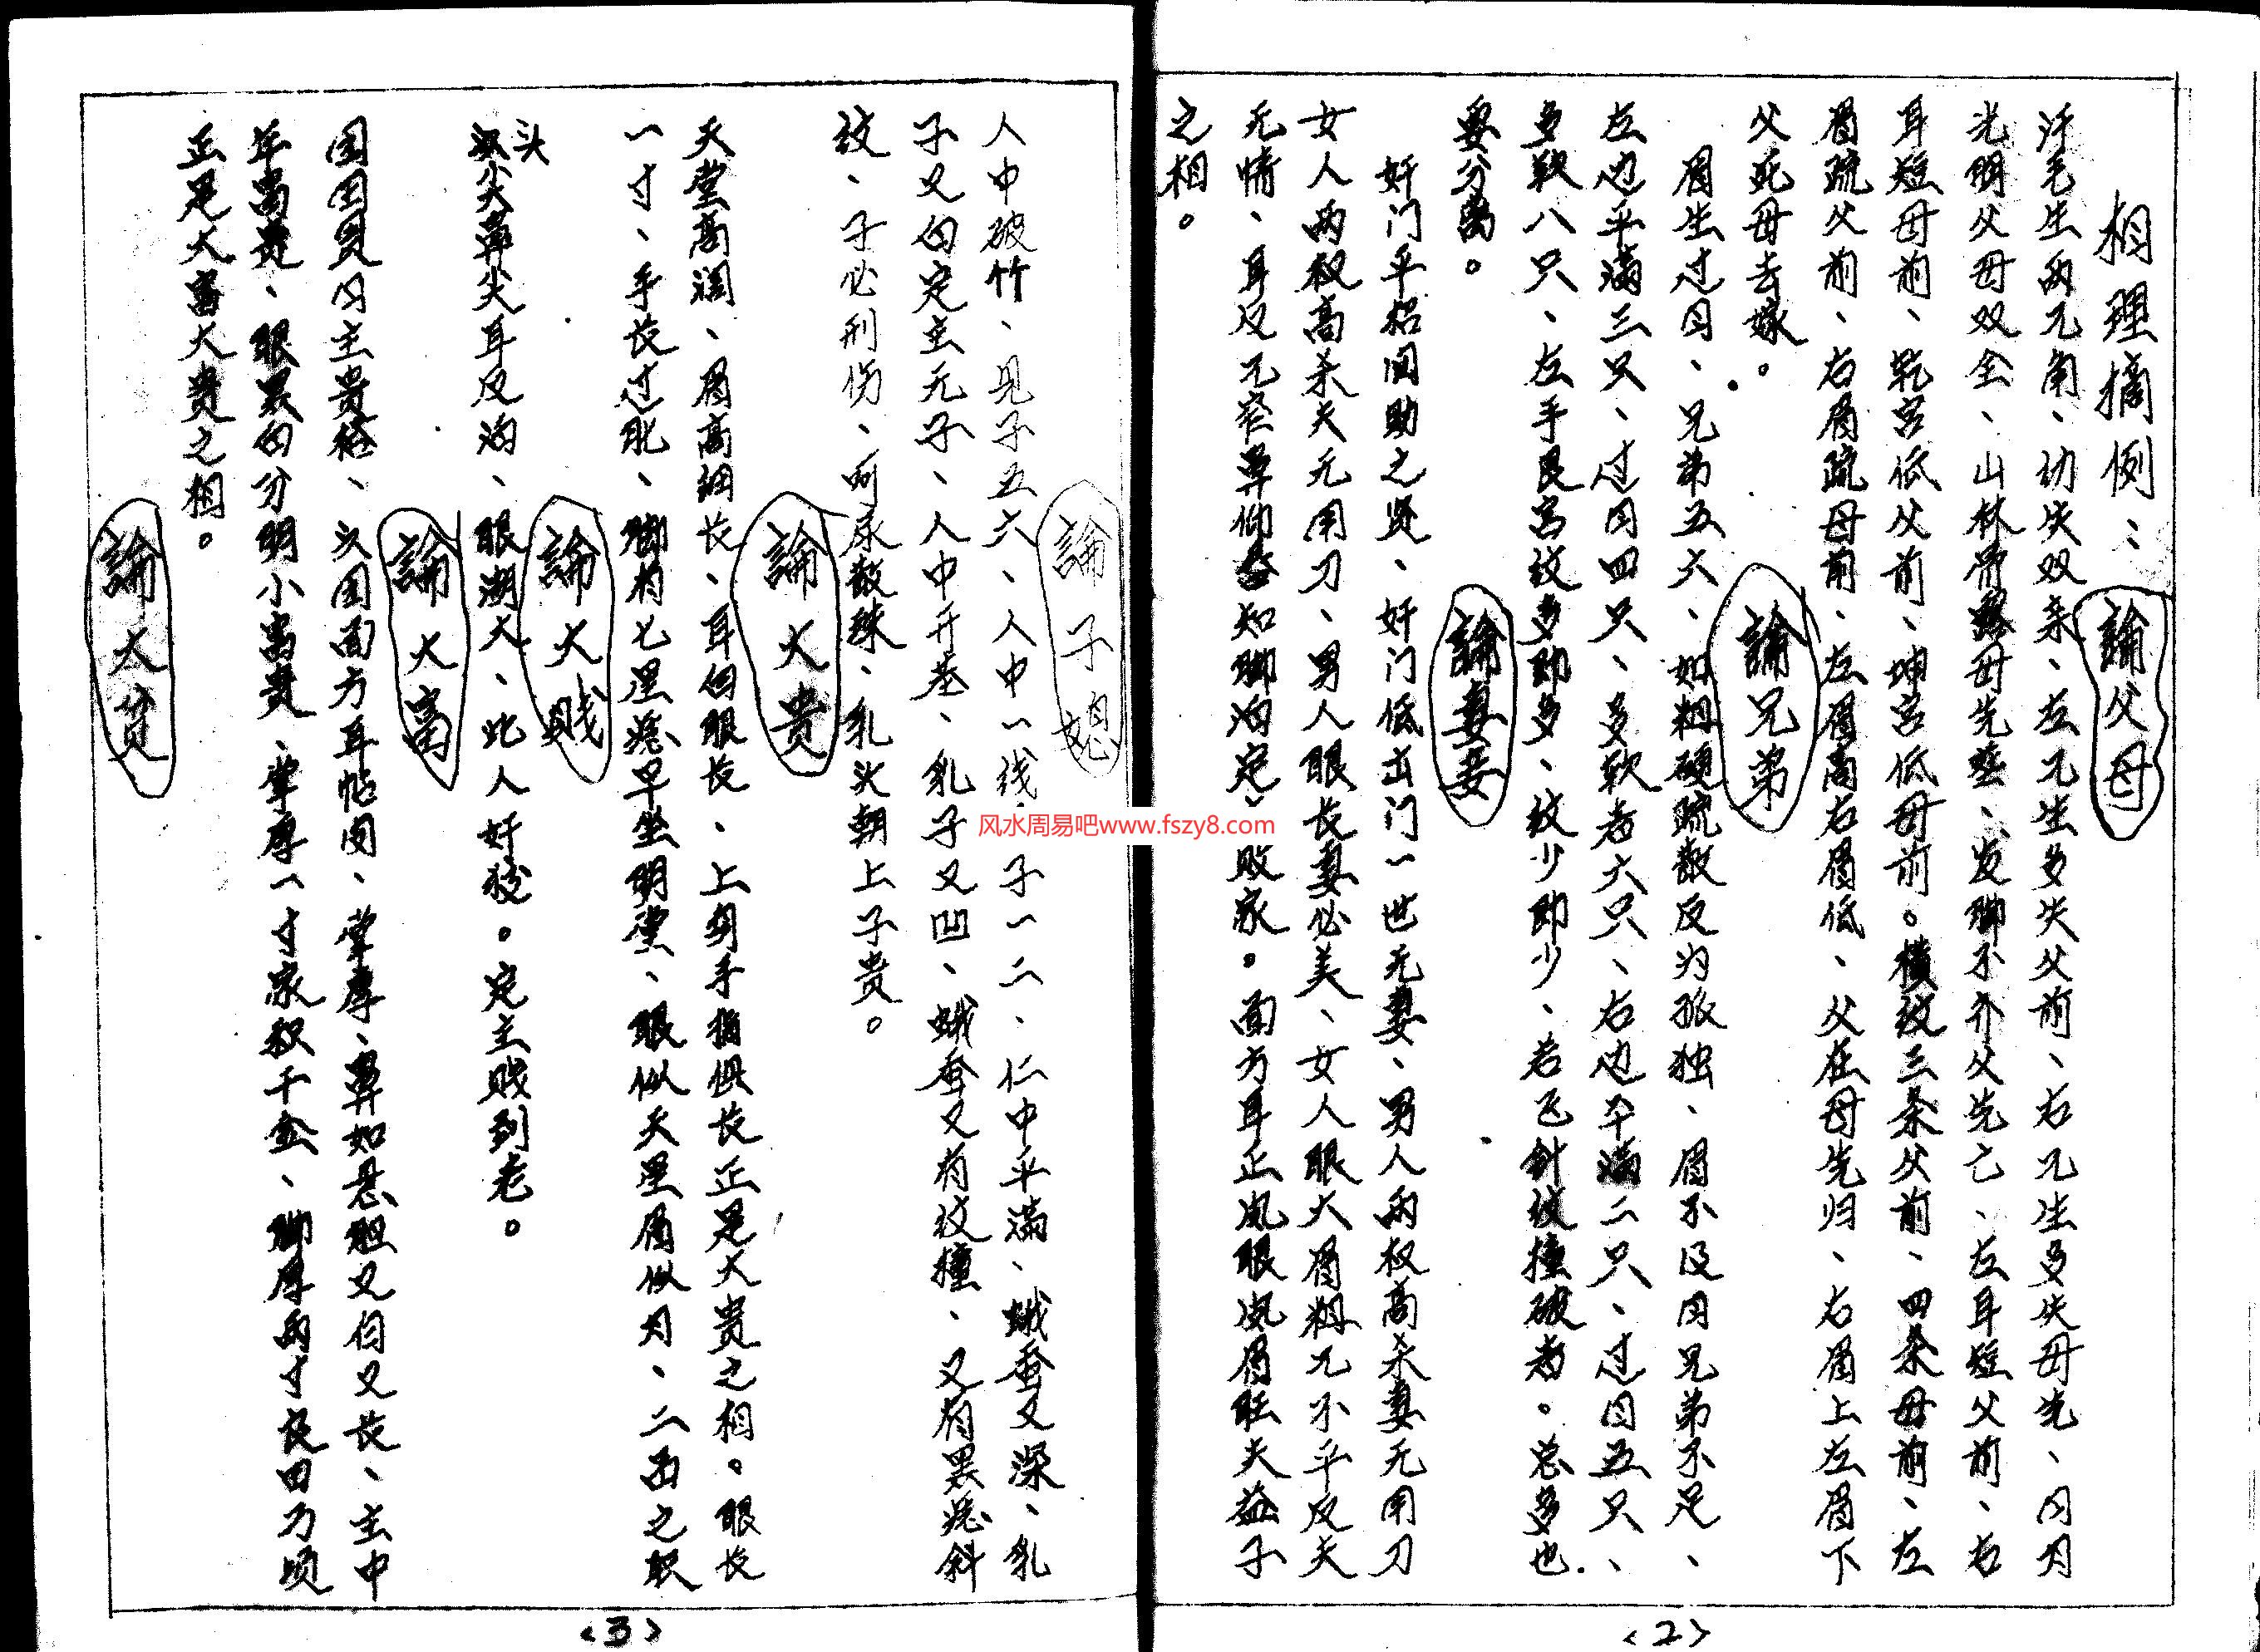 相理摘例：
論父母
汗毛生两兀角、幼失双亲、左兀生多失父前、右兀生多失母先、日月
光明父母双全、山林骨露母先丧、发脚不齐父先亡、左耳短父前、右
耳短母前、乾宫低父前、坤宫低母前。横纹三条父前、四条母前、左
眉疏父前、右眉疏母前、左眉高右眉低、父在母先归、右眉上左眉下
父死母去嫁。
論兄弟
眉生过目、兄弟五六、如粗硬疏散反为孤独、眉不及目兄弟不足、
左边平满三只、过目四只、多软者六只、右边平满二只、过目五只、
多软八只、左手艮宫纹多即多、纹少即少、若飞針纹撞破者。总多也
要分离。
論妻妾
奸门平招闰助之贤、奸门低出门一世无妻、男人两权高杀妻无用刀
女人两权高杀夫无用刀、男人眼长妻必美、女人眼大眉粗兀不平反夫
无情、耳反兀窄鼻仰知脚泃定败家。面方耳正凤眼凤眉旺夫益子
之相。
<2>
論子媳
人中破竹、见子五六、人中一线子一二、仁中平满、蛾蚕又深、乳
子又白定主无子、人中开花、乳子又凹、蛾蚕又有纹撞、又有黑痣斜
纹、子必刑伤、呵尿散珠、乳头朝上子贵。
論大贵
天堂高润、眉高细长、耳白眼长、上身手指俱长正是大贵之相。眼长
一寸、手长过肶、脚有七星痣早坐明堂、眼似天星眉似月、二品之职
論大贱
头尖鼻尖耳反泃、眼湖大、此人奸狡。定主贱到老。
論大富
国田贯日主贵格、头国面方耳帖肉、掌厚、鼻如悬胆又白又长、主中
年富贵、眼黑白分明小富贵、掌厚一寸家积千金、脚厚两寸良田万顷
正是大富大贵之相。
論大贫
<3>
风水周易吧www.fszy8.com